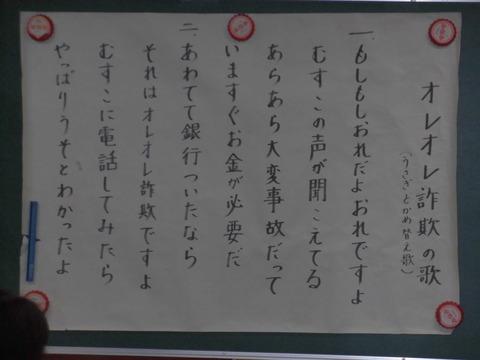 オレオレ詐欺の歌
(うさぎとかめ替え歌)
一、もしもしおれだよおれですよ
むすこの声が聞こえてる
あらあら大変事故だって
いますぐお金が必要だ
二、あわてて銀行ついたなら
それはオレオレ詐欺ですよ
むすこに電話してみたら
やっぱりうそとわかったよ